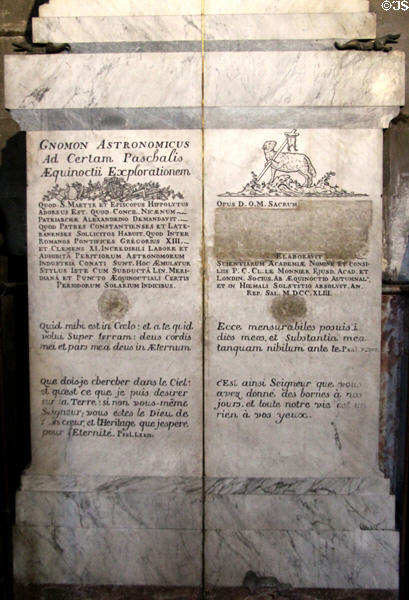 © JS
GNOMON ASTRONOMICUS
Ad Certam Paschalis
Æquinoctii Explorationem
QUOD. S. MARTYR ET EPISCOPUS HIPPOLYTUS
ADORSUS EST. QUOD. CONCIL. NICÆNUM
PATRIARCHÆ ALEXANDRINO DEMANDAVIT
QUOD PATRES CONSTANTIENSES ET LATE-
RANENSES SOLLICITOS HABUIT. QUOD INTER
ROMANOS PONTIFICES GREGORIUS XIII.
ET CLEMENS XI. INCREDIBILI LABORE ET
ADHIBITÂ PERITIORUM ASTRONOMORUM
INDUSTRIÂ CONATI SUNT. HOC ÆMULATUR
STYLUS ISTE CUM SUBDUCTÂ LIN. MERI-
DIANÂ ET PUNCTO ÆQUINOCTIALI CERTIS
PERIODORUM SOLARIUM INDICIBUS.
Quid mihi est in Cœlo: et a te quid
volui super terram: deus cordis
mei et pars mea deus in Æternum
Que dois-je chercher dans le Ciel:
et qu'est ce que je puis desirer
sur la Terre: si non vous-même
Seigneur; vous estes le Dieu de
cœur, et l'Heritage que jespere
pour l'Eternité. Psal. LXXII.
OPUS D. O. M. SACRUM
ELABORAVIT
SCIENTIARUM ACADEMIÆ NOMINE ET CONSI-
LIIS P. C. CL. LE MONNIER EJUSD. ACAD. ET
LONDIN. SOCIUS. AB ÆQUINOCTIO AUTUMNAL.
ET IN HIEMALI SOLSTITIO ABSOLVIT. AN.
REP. SAL. M.DCC.XLIII.
Ecce mensurabiles posuisti
dies meos, et Substantia mea
tanquam nihilum ante te. Psal.
C'Est ainsi Seigneur que vous
avez donné des bornes a nos
jours, et toute notre vie est un
rien à vos yeux.